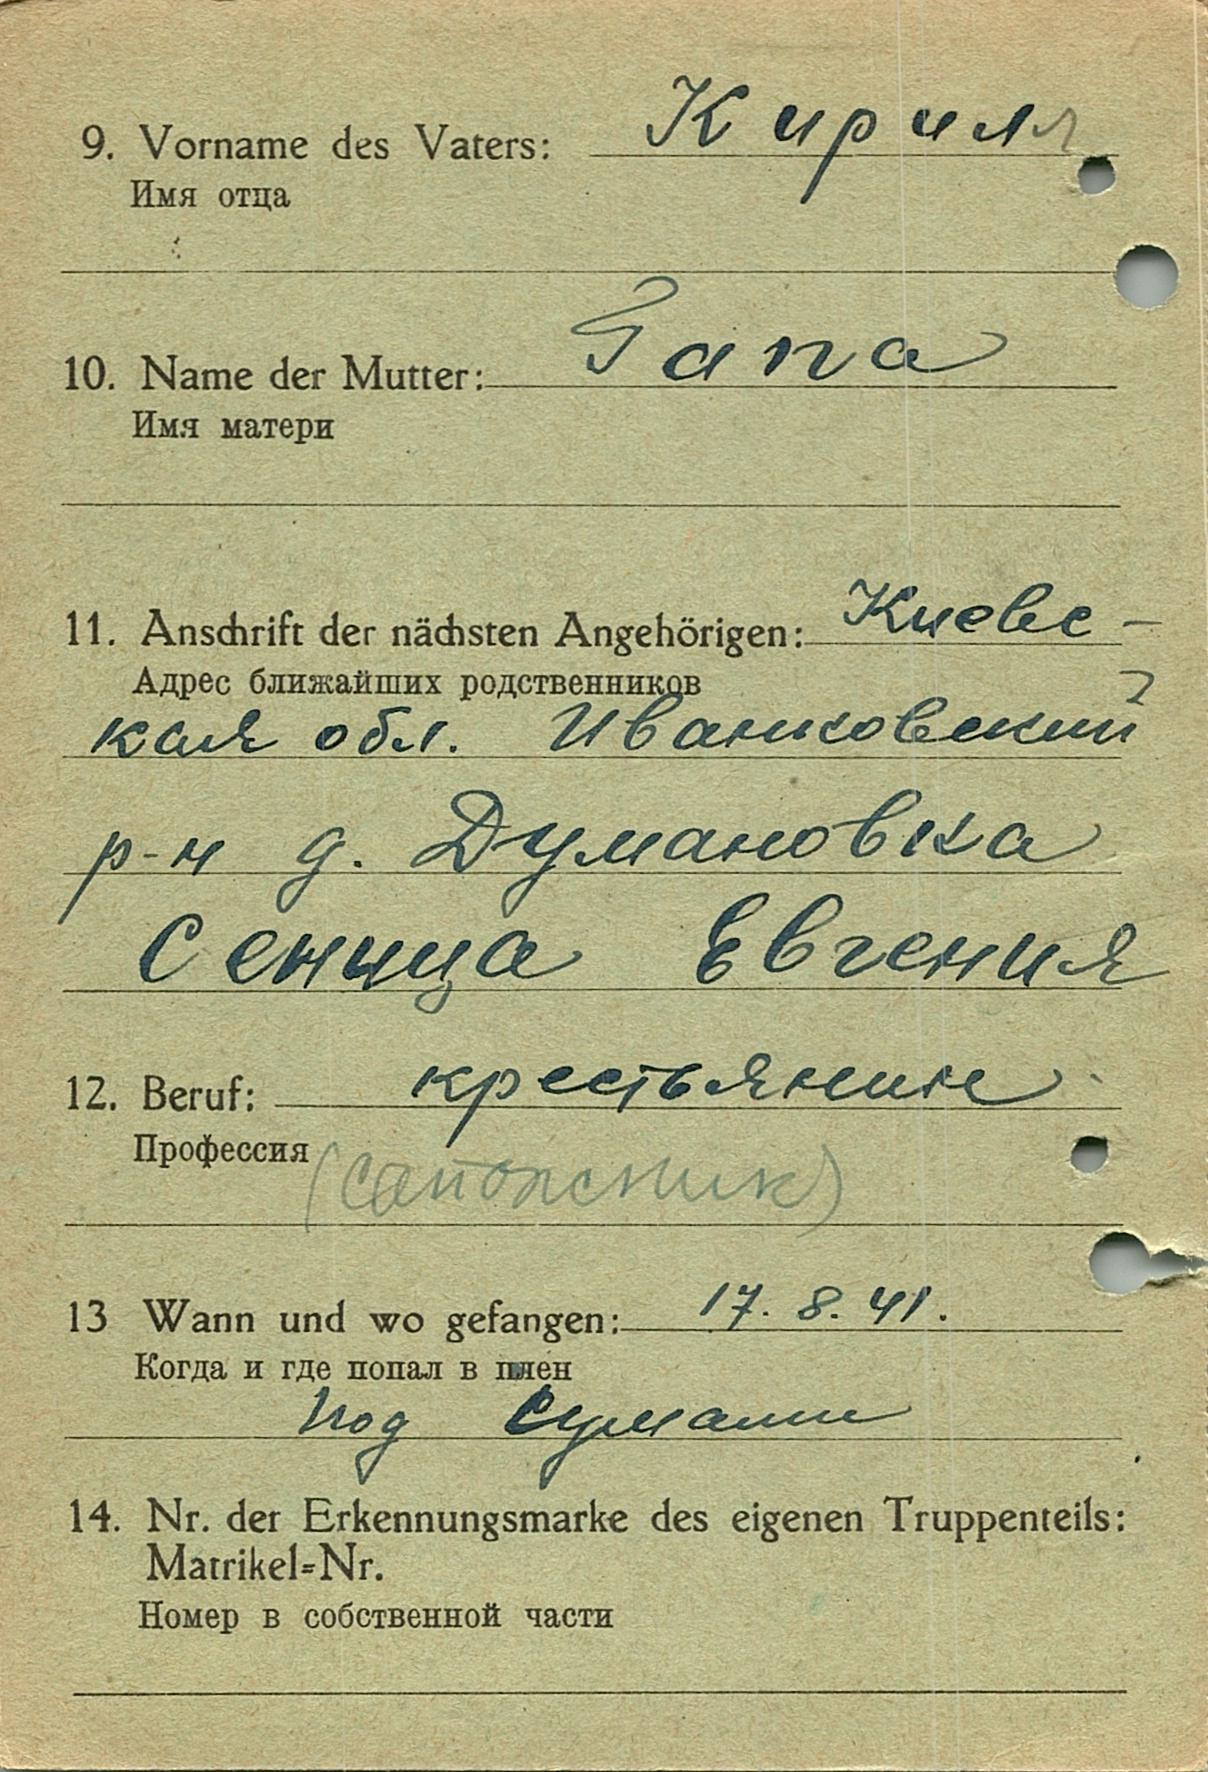 9. Vorname des Vaters: Кирилл
Имя отца
10. Name der Mutter: Гапа
Имя матери
11. Anschrift der nächsten Angehörigen: Киевс-
Адрес ближайших родственников
кая обл. Иванковский
р-н д. Думановка
Сеница Евгения
12. Beruf: крестьянин
Профессия
(сапожник)
13 Wann und wo gefangen: 17. 8. 41.
Когда и где попал в плен
под
14. Nr. der Erkennungsmarke des eigenen Truppenteils:
Matrikel=Nr.
Номер в собственной части